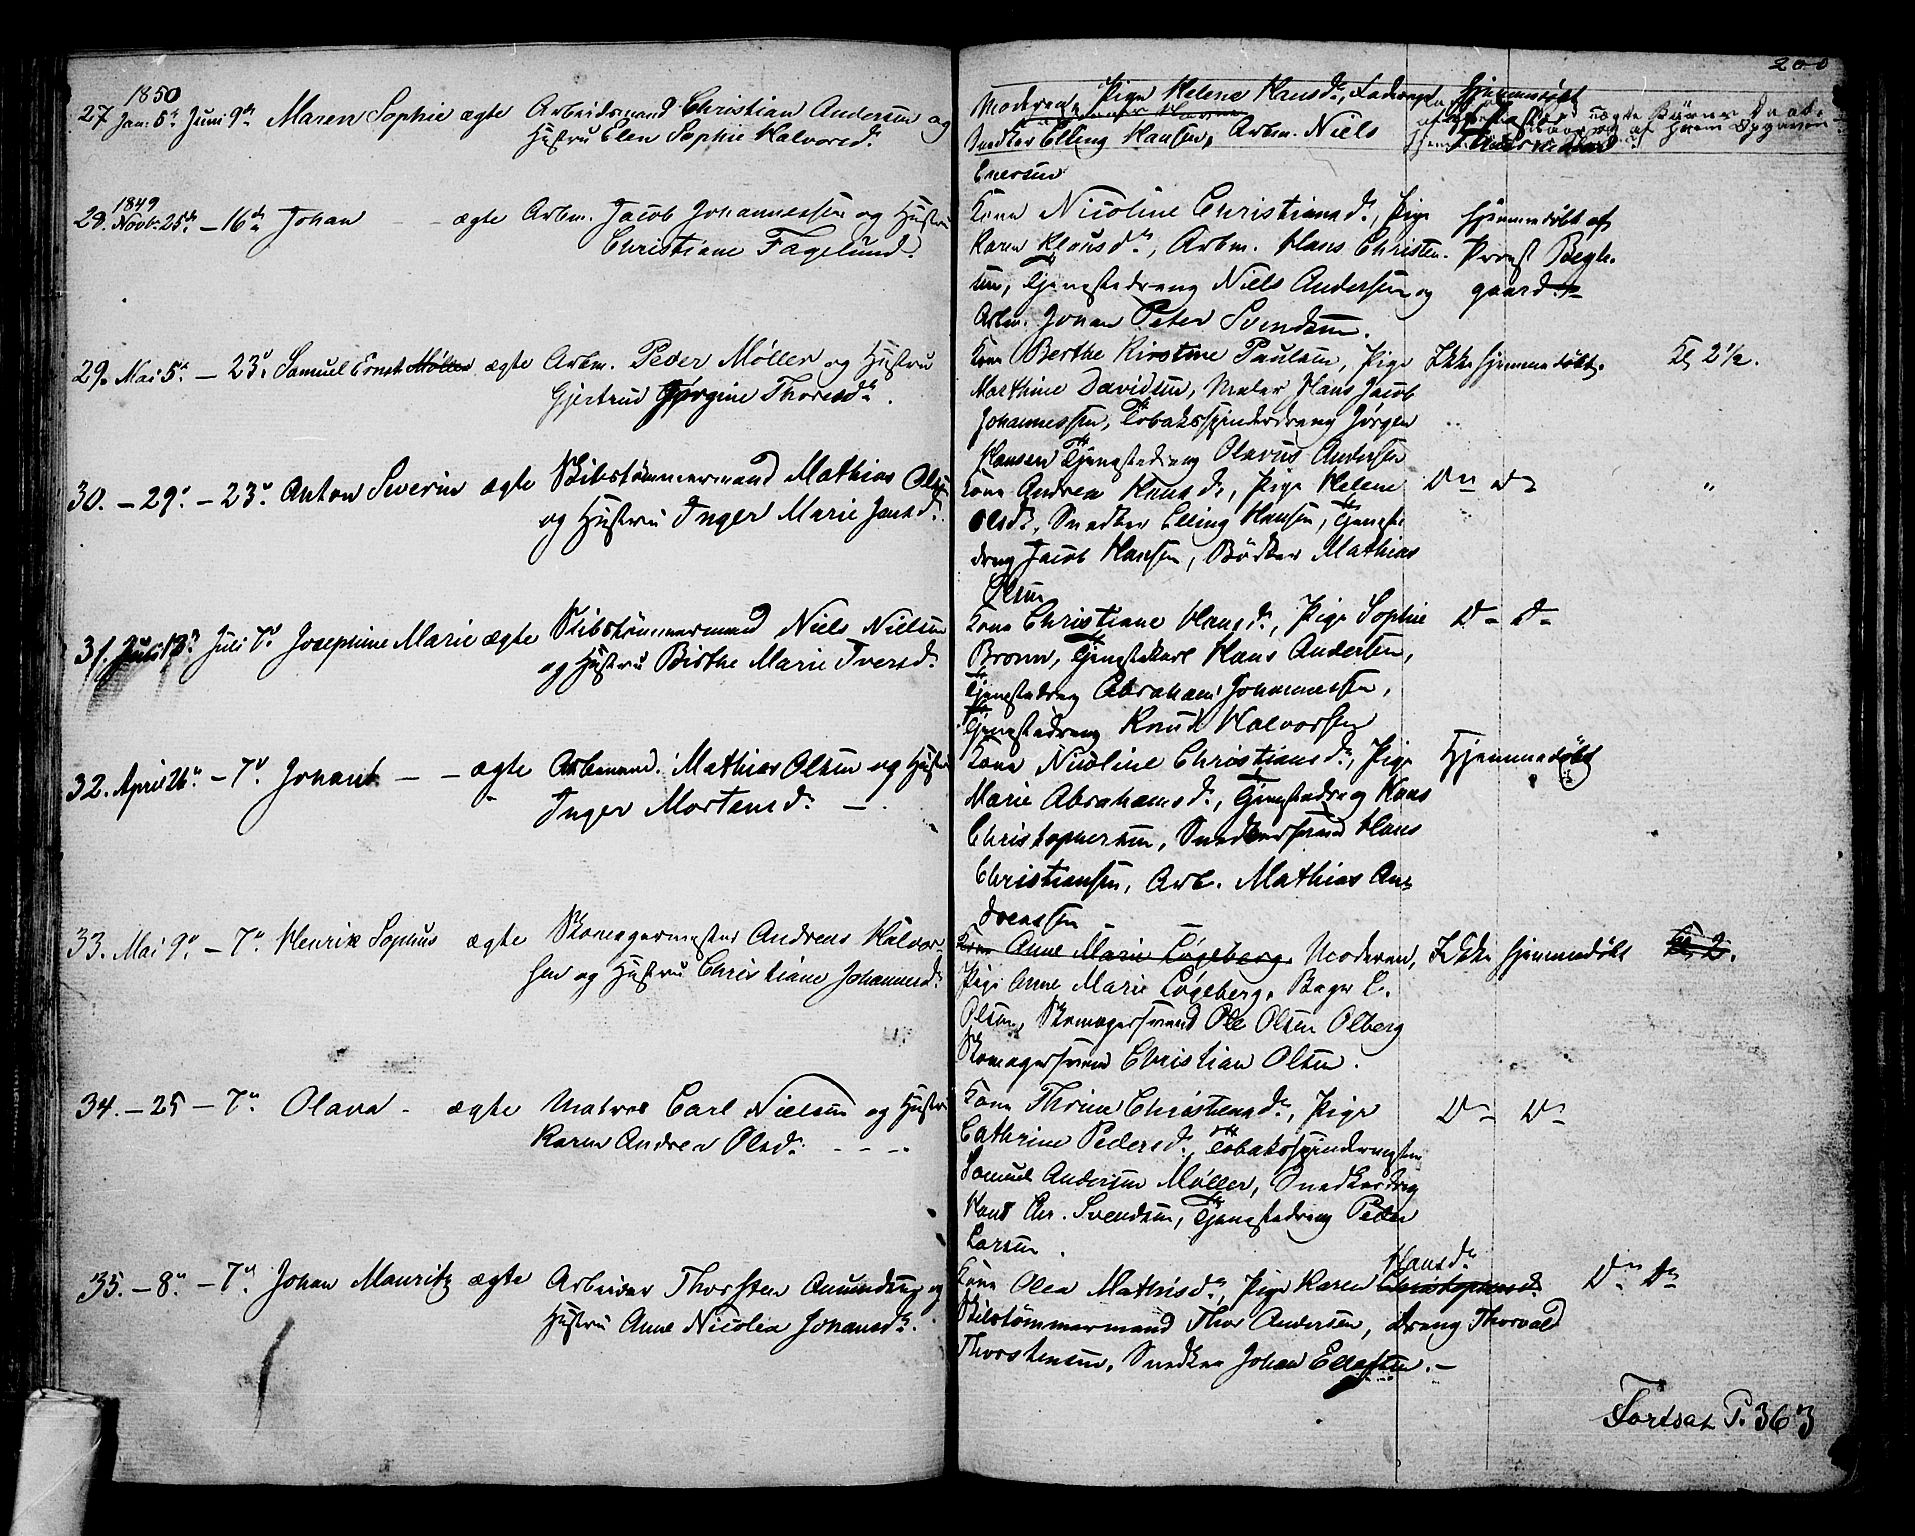 200
1850
27 Jan. 5te Juni 9de Maren Sophie ægte Arbeidsmand Christian Andersen og
Hustru Elen Sophie Halvorsd.
Moderen, Pige Helene Hansd., Faderen
Snedker Elling Hansen, Arbm. Niels
Enersen
Hjemmedøbt
1849
28. Novbr. 25de – 16de Johan – – ægte Arbm. Jacob Johannessen og Hustru
Christiane Fagelund.
Kone Nicoline Christiansd., Pige
Karen Klausd., Arbm. Hans Christen-
sen, Tjenestedreng Niels Andersen og
Arbm. Johan Peter Svendsen.
Hjemmedøbt af
Provst Bygh.
gaard
29. Mai 5te – 23de Samuel Ernst Møller ægte Arbm. Peder Møller og Hustru
Gjertrud Jørgine Thoresd.
Kone Berthe Kirstine Paulsen, Pige
Marthine Davidsen, Maler Hans Jacob
Johannessen, Tobaksspinderdreng Jørgen
Hansen Tjenestedreng Olavus Andersen
Ikke hjemmedøbt. Kl 2½.
30. – 29de – 23de Anton Severin ægte Skibstømmermand Mathias Olsen
og Hustru Inger Marie Jensd.
Kone Andrea Hansd., Pige Helene
Olsd., Snedker Elling Hansen, Tjeneste
dreng Jacob Hansen, Bødker Mathias
Olsen
Do Do "
31. Juli 13de Juli 7de Josephine Marie ægte Skibstømmermand Niels Nielsen
og Hustru Birthe Marie Iversd.
Kone Christiane Hansd., Pige Sophie
Bronn, Tjenestekarl Hans Andersen,
Tjenestedreng Abraham Johannessen,
Tjenestedreng Knud Halvorsen
Do Do
32. April 26de – 7de Johan – – ægte Arbmand. Mathias Olsen og Hustru
Inger Mortensd. –
Kone Nicoline Christiansd., Pige
Marie Abrahamsd., Tjenestedreng Hans
Christophersen, Snedkersvend Hans
Christiansen, Arb. Mathias An-
dreassen
Hjemmedøbt
33. Mai 9de – 7de Henrik Sophus ægte Skomagermester Andreas Halvor-
sen og Hustru Christiane Johannesd.
Kone Anne Marie Løgeberg, Moderen,
Pige Anne Marie Løgeberg, Bager C.
Olsen, Skomagersvend Ole Olsen Olberg
Skomagersvend Christian Olsen.
Ikke hjemmedøbt Kl 2.
34. – 25 – 7de Olava – ægte Matros Carl Nielsen og Hustru
Karen Andrea Olsd. – – –
Kone Thrine Christensd., Pige
Cathrine Pedersd., Tobaksspindermester
Samuel Andersen Møller, Snedkerdrg
Hans Chr. Svendsen, Tjenestedreng Peder
Larsen.
Do Do
35. – 8de – 7de Johan Mauritz ægte Arbeider Thorsten Amundsen og
Hustru Anne Nicolea Johansd.
Hansd.
Kone Olea Mathisd., Pige Karen Christophersd.
Skibstømmermand Thor Andersen, Dreng Thorvald
Thorstensen, Snedker Johan Ellefsen. –
Do Do
Fortsat P. 363